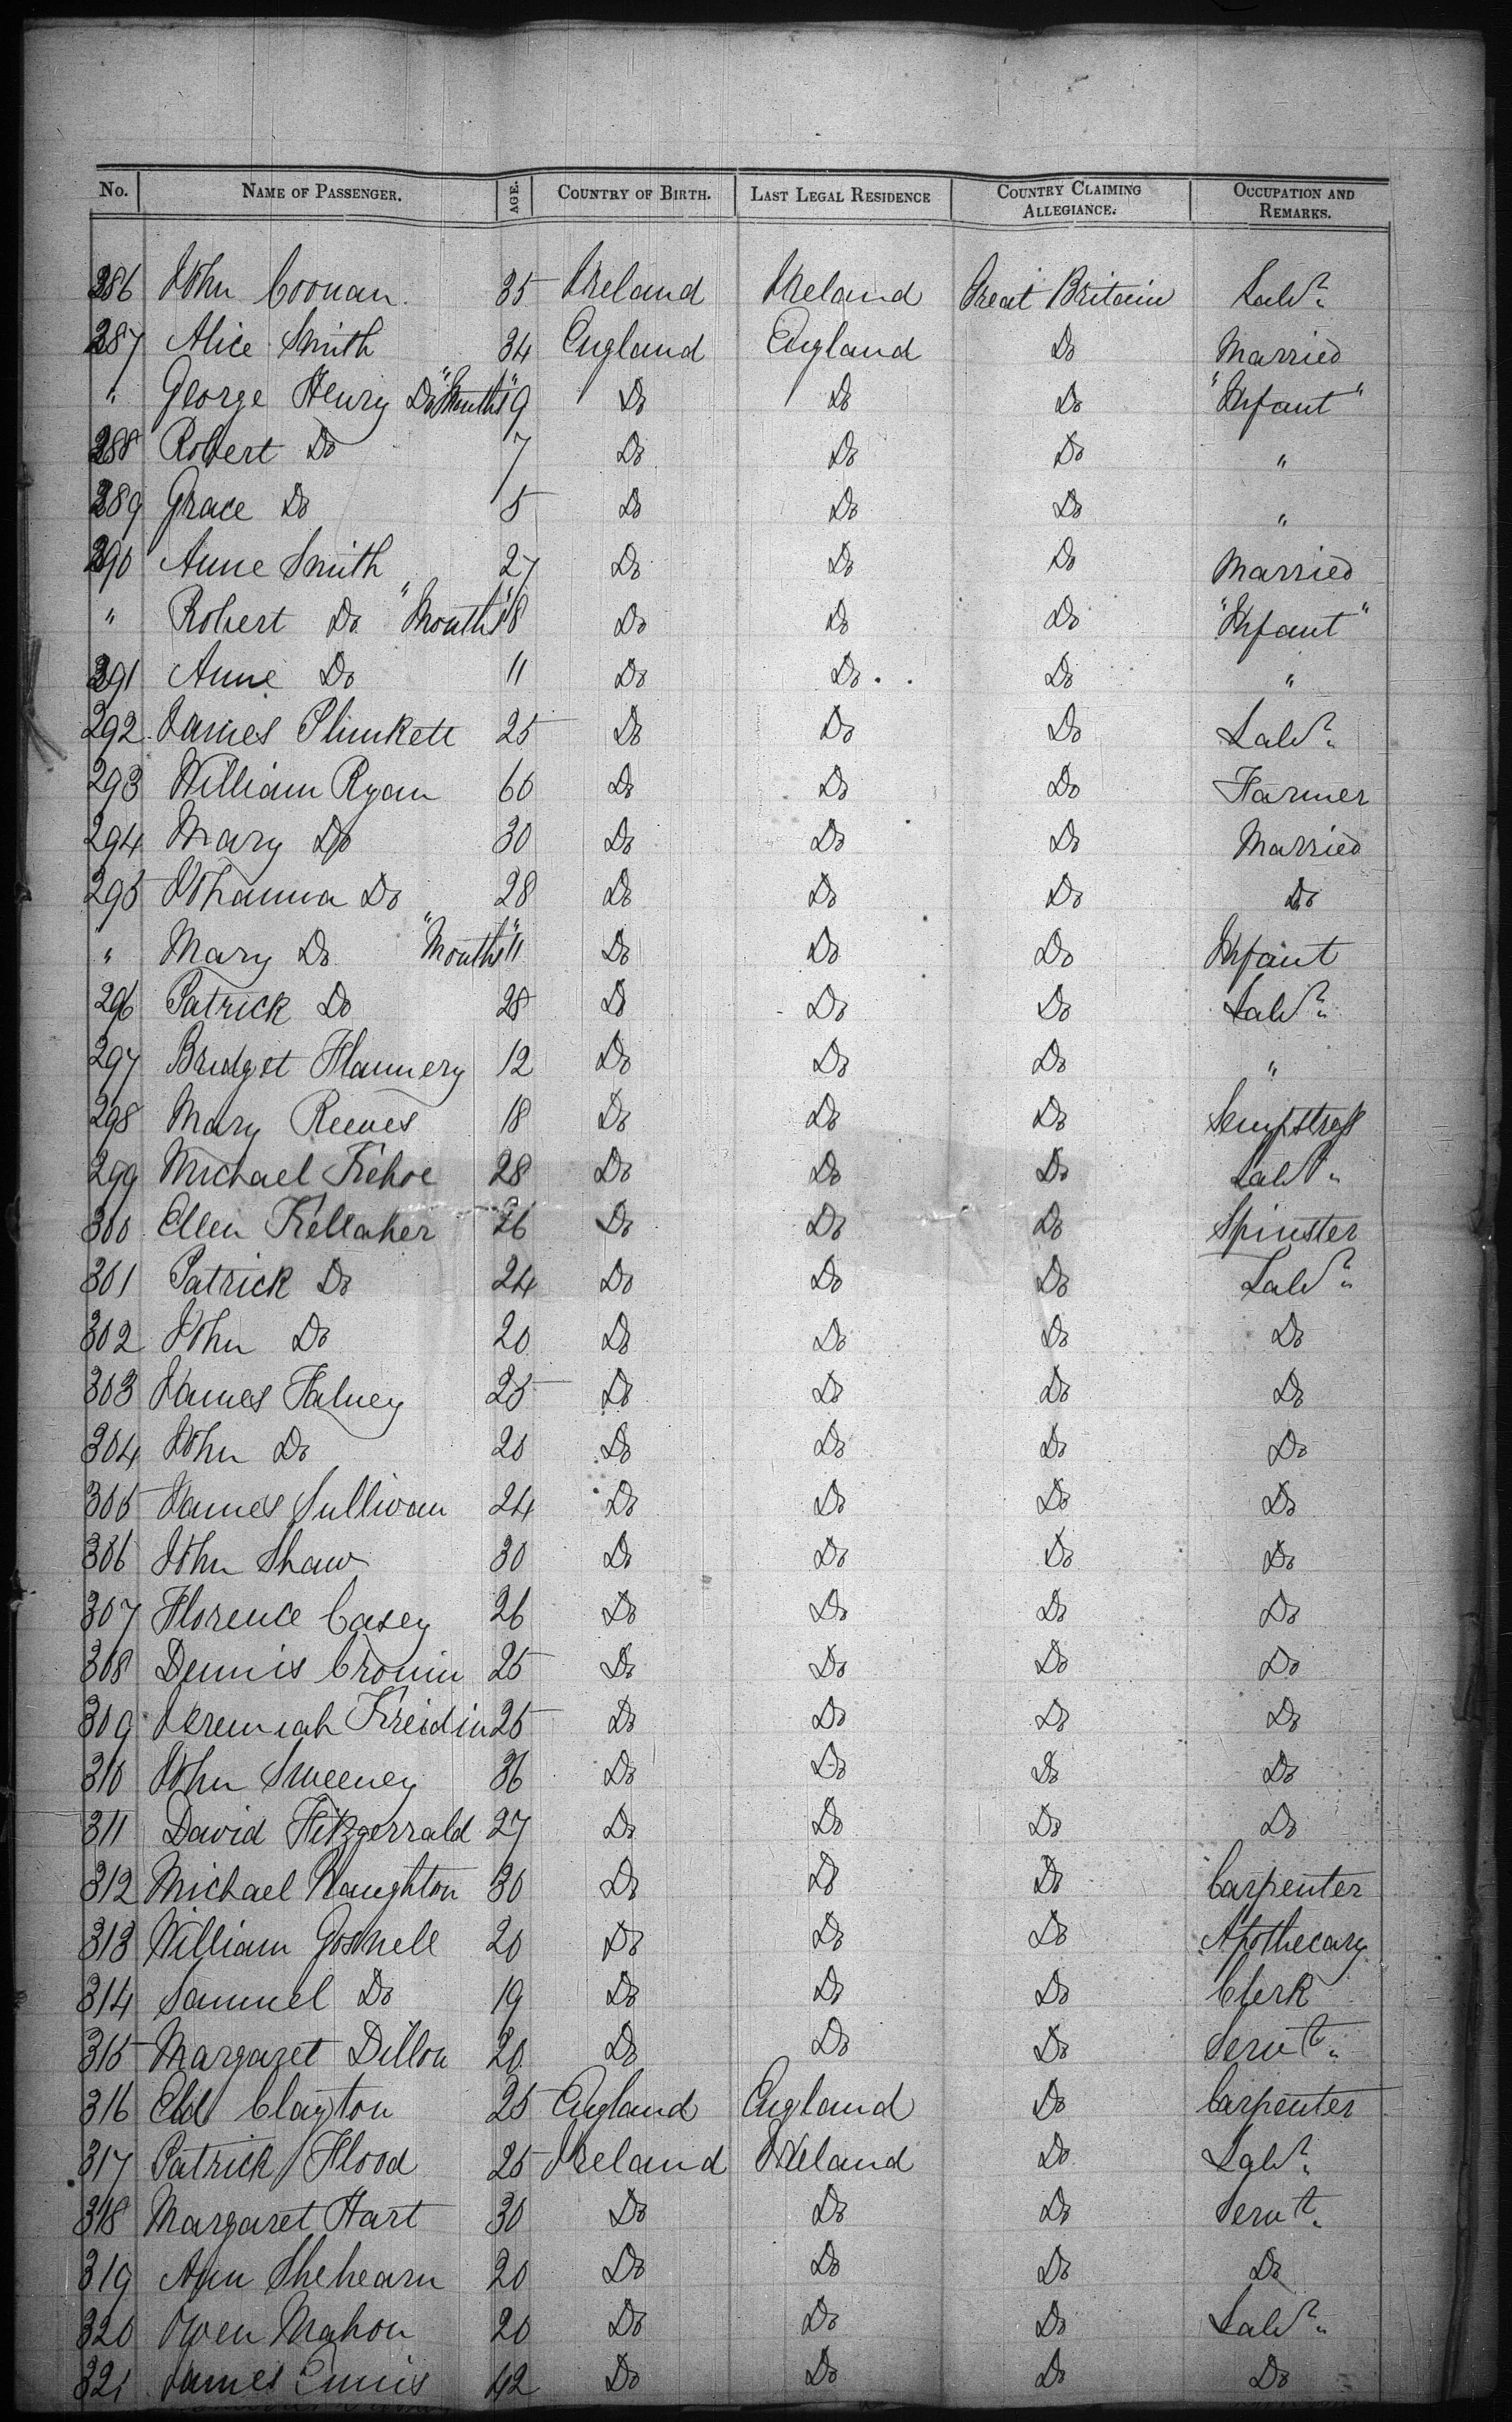 No. NAME OF PASSENGER. AGE. COUNTRY OF BIRTH. LAST LEGAL RESIDENCE COUNTRY CLAIMING ALLEGIANCE. OCCUPATION AND REMARKS.
286 John Coonan. 35 Ireland Ireland Great Britain Labr.
287 Alice Smith 34 England England Do Married
" George Henry Do "Months" 9 Do Do Do "Infant"
288 Robert Do 7 Do Do Do "
289 Grace Do 5 Do Do Do "
290 Anne Smith 27 Do Do Do Married
" Robert Do "Months" 8 Do Do Do "Infant"
291 Anne Do 11 Do Do Do "
292 James Plunkett 25 Do Do Do Labr.
293 William Ryan 60 Do Do Do Farmer
294 Mary Do 30 Do Do Do Married
295 Johanna Do 28 Do Do Do Do
" Mary Do "Months" 11 Do Do Do Infant
296 Patrick Do 28 Do Do Do Labr.
297 Bridget Flannery 12 Do Do Do "
298 Mary Reeves 18 Do Do Do Sempstress
299 Michael Kehoe 28 Do Do Do Labr.
300 Ellen Kellaher 26 Do Do Do Spinster
301 Patrick Do 24 Do Do Do Labr.
302 John Do 20 Do Do Do Do
303 James Falvey 25 Do Do Do Do
304 John Do 20 Do Do Do Do
305 James Sullivan 24 Do Do Do Do
306 John Shaw 30 Do Do Do Do
307 Florence Casey 26 Do Do Do Do
308 Dennis Cronin 25 Do Do Do Do
309 Jeremiah 25 Do Do Do Do
310 John Sweeney 36 Do Do Do Do
311 David Fitzgerrald 27 Do Do Do Do
312 Michael Naughton 30 Do Do Do Carpenter
313 William Gosnell 20 Do Do Do Apothecary
314 Samuel Do 19 Do Do Do Clerk
315 Margaret Dillon 20 Do Do Do Servt.
316 Clayton 25 England England Do Carpenter
317 Patrick Flood 25 Ireland Ireland Do Labr.
318 Margaret Hart 30 Do Do Do Servt.
319 Ann Shehearn 20 Do Do Do Do
320 Owen Mahon 20 Do Do Do Labr.
321 James Ennis 42 Do Do Do Do